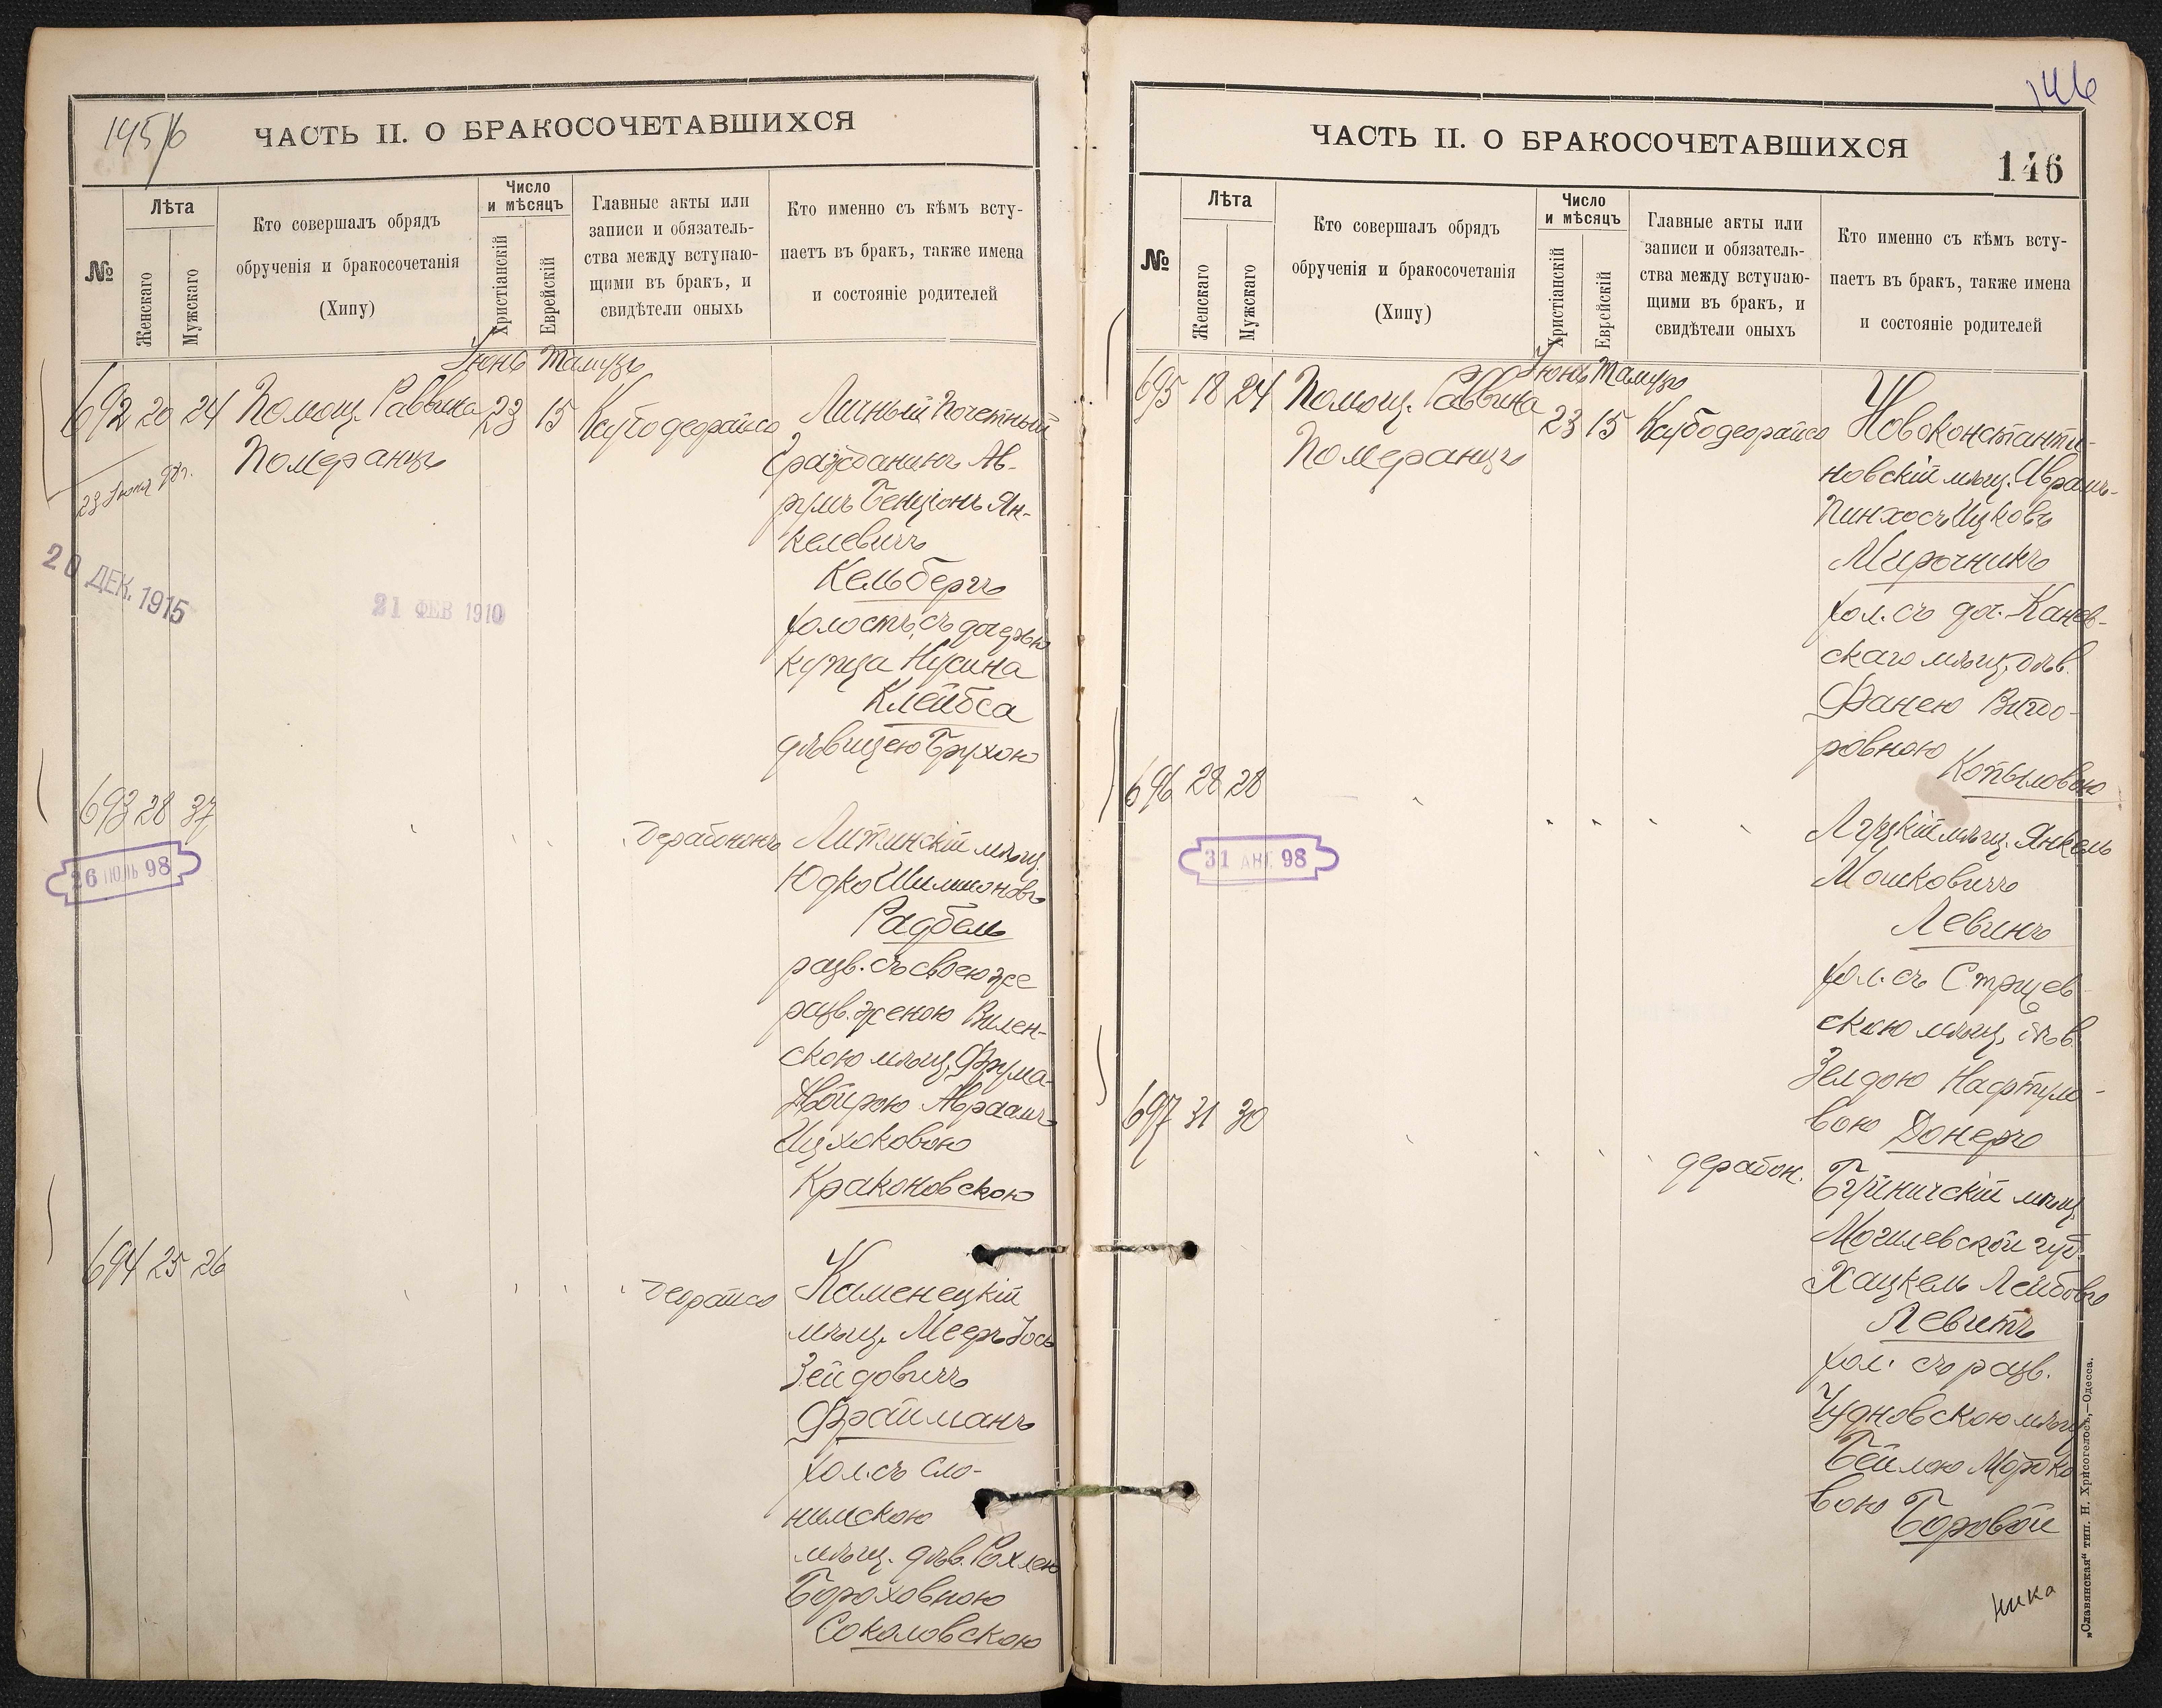 145/6
ЧАСТЬ II. О БРАКОСОЧЕТАВШИХСЯ
№
Лѣта
Женскаго
Мужскаго
Кто совершалъ обрядъ
обрученія и бракосочетанія
(Хипу)
Число
и мѣсяцъ
Христіанскій
Еврейскій
Главные акты или
записи и обязатель-
ства между вступаю-
щими въ бракъ, и
свидѣтели оныхъ
Кто именно съ кѣмъ всту-
паетъ въ бракъ, также имена
и состояніе родителей
Іюнь Тамузъ
692 20 24 Помощ. Раввина 23 15
Померанцъ
23 Іюня 98г.
20 ДЕК. 1915
21 ФЕВ 1910
Личный Почетный
Гражданинъ Ав-
румъ Бенціонъ Ян-
келевичъ
Кельбергъ
холостъ, съ дочерью
купца Нусина
Клейбса
дѣвицею Брухою
693 28 37
26 ІЮЛЬ 98
Литинскій мѣщ.
Юдко Шимшоновъ
Радбель
разв. съ своею же
разв. женою Вилен-
скою мѣщ. Фрума-
Двойрою Авраамъ
Ицхоковою
Краконовскою
694 25 26
Деорайсо
Каменецкій
мѣщ. Мееръ Іось
Зейдовичъ
Фрайманъ
хол. съ Сло-
нимскою
мѣщ. дѣв. Рохлею
Бороховною
Соколовскою
146
ЧАСТЬ II. О БРАКОСОЧЕТАВШИХСЯ
146
№
Лѣта
Женскаго
Мужскаго
Кто совершалъ обрядъ
обрученія и бракосочетанія
(Хипу)
Число
и мѣсяцъ
Христіанскій
Еврейскій
Главные акты или
записи и обязатель-
ства между вступаю-
щими въ бракъ, и
свидѣтели оныхъ
Кто именно съ кѣмъ всту-
паетъ въ бракъ, также имена
и состояніе родителей
Іюнь Тамузъ
695 18 24 Помощ. Раввина 23 15
Померанцъ
Новоконстанти-
новскій мѣщ. Аврамъ-
Пинхосъ Ицковъ
Мирочникъ
хол. съ доч. Канев-
скаго мѣщ. дѣв.
Фанею Вигдо-
ровною
Копыловою
696 28 28
31 АВГ. 98
Луцкій мѣщ. Янкель
Мошковичъ
Левинъ
хол. съ
скою мѣщ. дѣв.
Зелдою Нафтуло-
вою Донеръ
697 31 30
дерабон.
мѣщ.
Могилевской губ.
Хацкель Лейбовъ
Левитъ
хол. съ разв.
Чудновскою мѣщ.
Бейлою Мортко
вою Боровой
ника
„Славянская“ тип. Н. Хрисогелосъ,—Одесса.